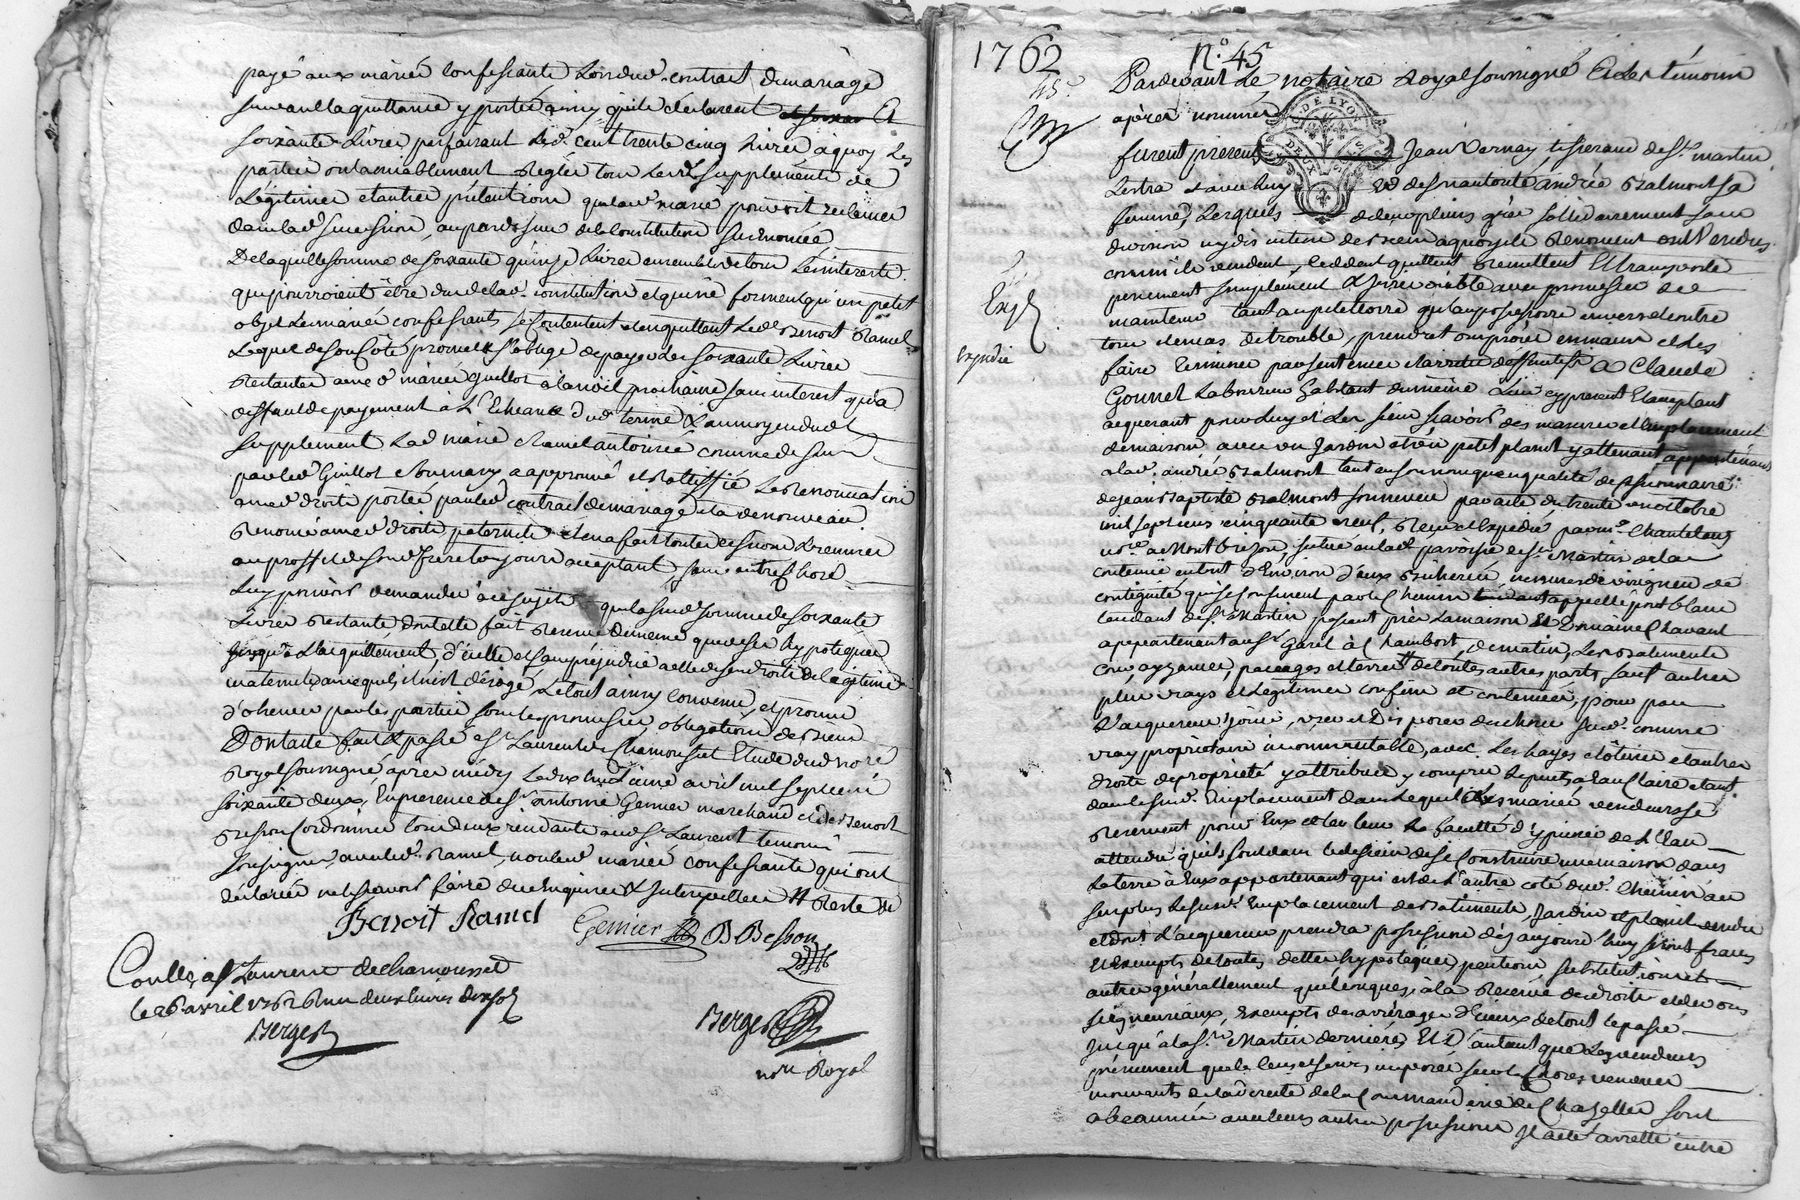 payé aux mariés confessants lors dud. contract de mariage
suivant la quittance y portée ainsy qu'ils declarent Et
soixante Livres parfaisant Lesd. cent trente cinq Livres à quoy Les
parties ont amiablement Reglés tous Lesd. supplements de
Légitimes et autres prétentions que lad. mariée pouvoit reclamer
dans lad. succession, au pardessus de la constitution sus énoncée,
De laquelle somme de soixante quinze Livres ensemble de tous Les interests
qui pourroient être dus de lad. constitution et qui ne forment qu'un petit
objet Les mariés confessants se Contentent et en quittent Led. Benoit Ramel
Lequel de son Côté promet & s'oblige de payer Les soixante Livres
Restantes auxd. mariés Guillot à la noël prochaine sans interest qu'à
deffaut de payement à L'Echeance dud. terme & au moyen dud.
supplement Lad. marie Ramel autorisée comme dessus
par led. Guillot son mary a approuvé et Ratiffié La Renonciation
auxd. droits portée par led. contract de mariage et a de nouveau
Renoncé auxd. droits paternels et en a fait toutes cessions & remises
au proffit de sond. frere toujours acceptant, sans autre chose
Luy pouvoir demander à ce sujet que la susd. somme de soixante
Livres Restante dont elle fait Reserve de meme que de ses hypoteques
jusqu'à L'acquittement d'icelle et sans préjudice a elle de ses droits de Légitime
maternels auxquels il n'est dérogé, Le tout ainsy convenu, et promis
d'observer par les parties sous les promesses, obligations de Biens
Dont acte fait & passé à St Laurent de Chamousset Etude dud. nore
Royal soussigné, apres midy Le dix huitieme avril mil sept cent
soixante deux, En presence de Sr antoine Gernier marchand et de Benoit
Besson Cordonnier tous deux residants aud. St Laurent temoins
soussignés, avec led. Ramel, non lesd. mariés confessants qui ont
declaré ne le scavoir faire de ce Enquis & Interpellés
Benoit Ramel Gernier B Besson
Conllé à St Laurent de chamousset
le 26 avril 1762 Reçu deux livres dix sols
Berger
Berger
nore Royal
1762 No. 45
45e
Expedié
Pardevant Le notaire Royal soussigné Et des témoins
après nommés
DE LYON
DEUX S
furent presents Jean Vernay, tisserand de St. martin
Lestra et avec luy de son autorité andrée Balmont sa
femme, Lesquels de leurs pleins grés solidairement sans
division ny discution de Biens a quoy ils Renoncent ont Vendus
comme ils vendent, cedent quittent Remettent Et transportent
purement simplement & irrévocablement avec promesse de
maintenir tant au petitoire qu'au possessoire envers et contre
tous et en cas de trouble, prendre en propres mains et Les
faire terminer par sentence et arrets deffinitifs à Claude
Gounet Laboureur habitant du même Lieu cy present Et acceptant
acquerant pour luy et les siens scavoir des masures et Emplacement
de maison, avec un Jardin et un petit planit y attenant, appartenants
a lad. andrée Balmont tant en son nom que en qualité de
de Jean Baptiste Balmont son neveu par acte du trente un octobre
mil sept cens cinquante neuf, Reçu et Expedié par me. Chantelauze
nore. a Montbrison, situé en lad. paroisse de St. Martin de la
contenue en tout d'Environ deux Bicherées, mesure de de
contiguité qui se confinent par le Chemin appellé pont blanc
tendant de St. Martin passant près La maison Et Domaine Chavant
appartenant au Sr. Garel à Chambost, de matin, Les Batiments
Cour, aysances, passages et terres de toutes autres parts sauf autres
plus vrays et Legitimes confins et contenues, pour par
L'acquereur Jouir, user et Disposer des choses susd. comme
vray proprietaire incommutable, avec Les hayes clôtures et autres
droits de proprieté y attribués y compris Le puits à Eau Claire etant
dans le susd. Emplacement dans Lequel Les mariés vendeurs se
Reservent pour Eux et les leurs La faculté d'y puiser de L'Eau
attendu qu'ils sont dans le dessein de se Construire une maison dans
La terre à Eux appartenant qui est de L'autre coté dud. Chemin au
surplus Le susd. Emplacement de Batiments, Jardin et planit vendu
et dont L'acquereur prendra possession dès aujourd'huy sont francs
Et Exempts de toutes dettes hypoteques, pentions, substitutions et
autres générallement quelconques, à la Reserve des droits et devoirs
seigneuriaux, Exempts des arrérages d'iceux de tout le passé
Jusqu'à la St. Martin dernière, Et D'autant que Les vendeurs
presument que le Cens et servis imposés sur les Choses vendues
mouvants de la Directe de la Commanderie de Chazelles sont
abeaunés avec leurs autres possessions Il a été arretté entre